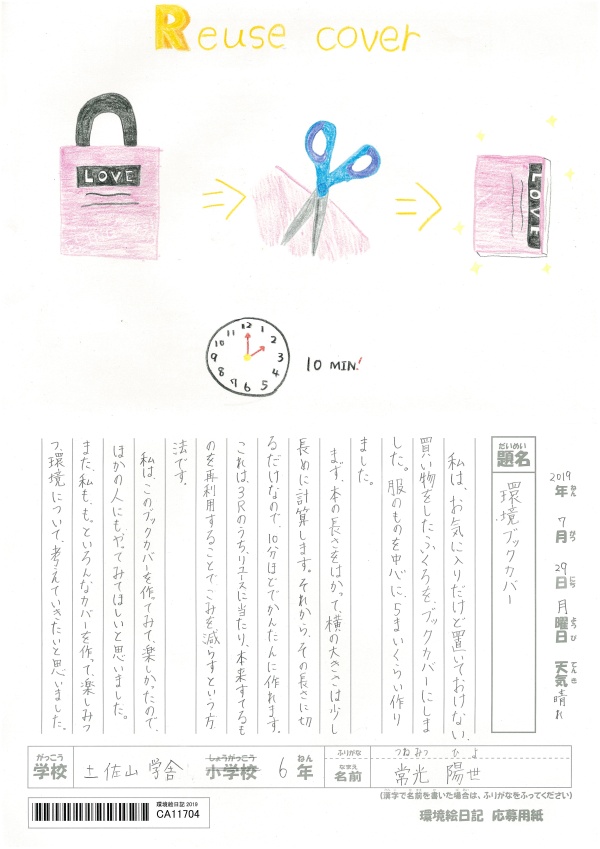 Reuse cover
LOVE
LOVE
12
1
2
3
4
5
6
7
8
9
10
11
10 MIN!
2019年 7月 29日 月曜日 天気 晴れ
ねん がつ にち ようび てんき
だいめい
題名
環境ブックカバー
私は、お気に入りだけど置いておけない、
買い物をしたふくろを、ブックカバーにしま
した。服のものを中心に、5まいくらい作り
ました。
まず、本の長さをはかって、横の大きさは少し
長めに計算します。それから、その長さに切
るだけなので、10分ほどでかんたんに作れます。
これは、3Rのうち、リユースに当たり、本来すてるも
のを再利用することでごみを減らすという方
法です。
私は、このブックカバーを作ってみて、楽しかったので、
ほかの人にもやってみてほしいと思いました。
また、私も、もっといろんなカバーを作って、楽しみつ
つ、環境について、考えていきたいと思いました。
がっこう
学校
土佐山学舎
しょうがっこう
小学校
6年
ねん
ふりがな
つねみつ ひよ
なまえ
名前
常光 陽世
(漢字で名前を書いた場合は、ふりがなをふってください)
環境絵日記2019
CA11704
環境絵日記 応募用紙